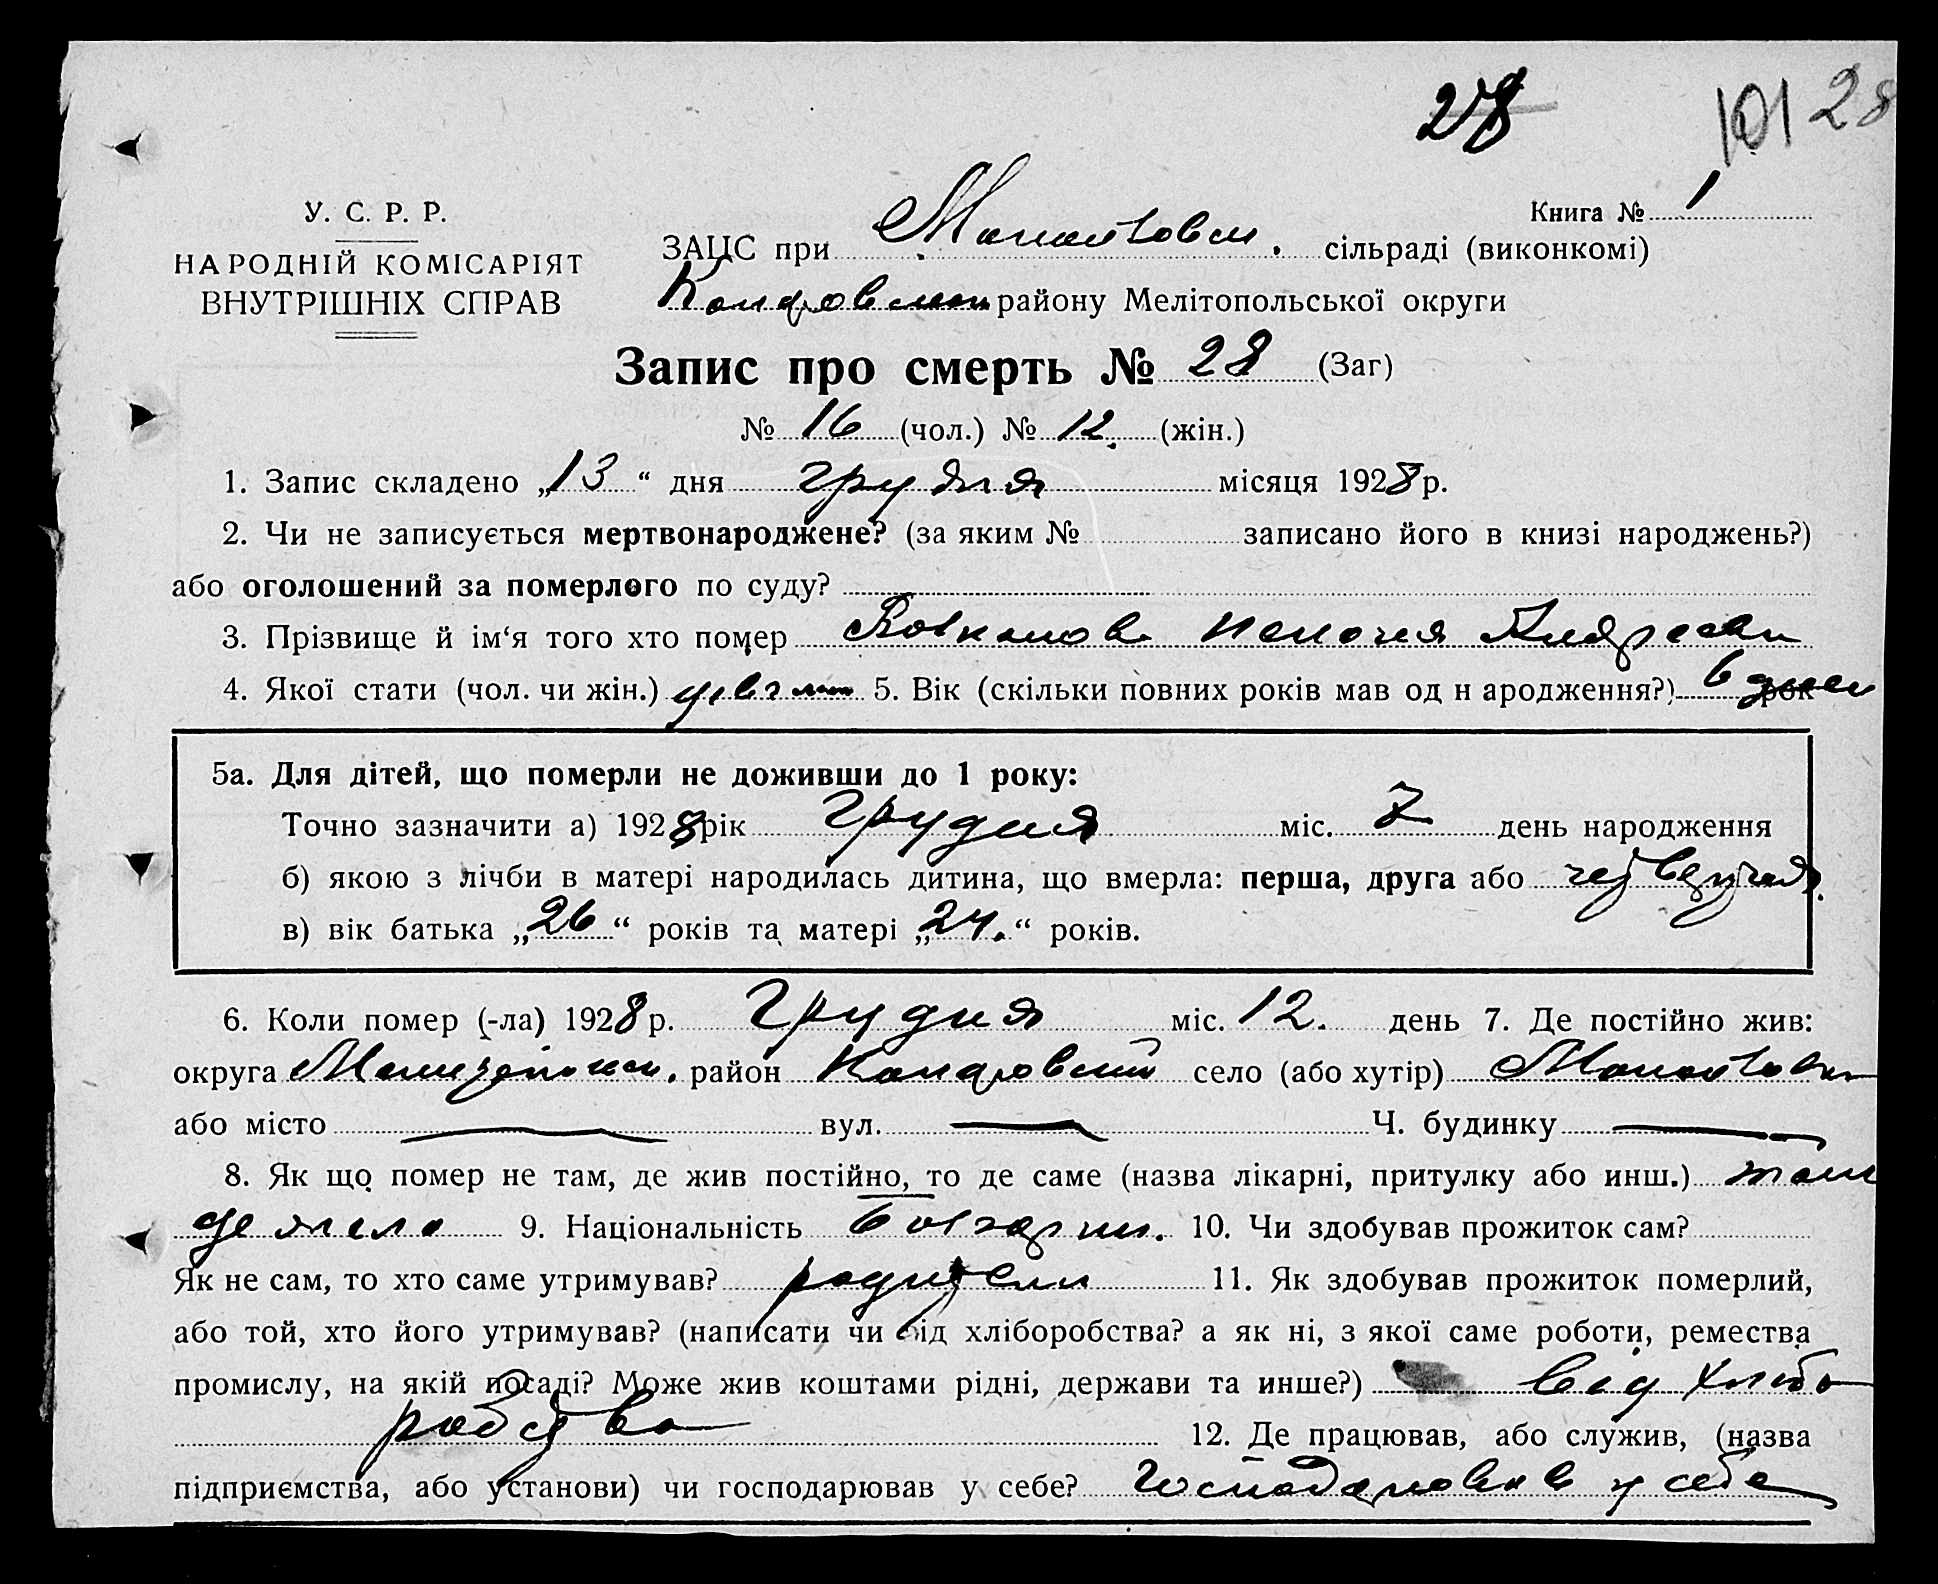 28
101 28
У. С. Р. Р.
НАРОДНІЙ КОМІСАРІЯТ
ВНУТРІШНІХ СПРАВ
Книга № 1
ЗАЦС при сільраді (виконкомі)
району Мелітопольської округи
Запис про смерть № 28 (Заг)
№ 16 (чол.) № 12. (жін.)
1. Запис складено „13“ дня грудня місяця 1928 р.
2. Чи не записується мертвонароджене? (за яким № записано його в книзі народжень?)
або оголошений за померлого по суду?
3. Прізвище й ім‘я того хто помер
4. Якої стати (чол. чи жін.) 5. Вік (скільки повних років мав од н ародження?) 6 дней рок
5а. Для дітей, що померли не доживши до 1 року:
Точно зазначити а) 1928 рік грудня міс. 7 день народження
б) якою з лічби в матері народилась дитина, що вмерла: перша, друга або
в) вік батька „26“ років та матері „24.“ років.
6. Коли помер (-ла) 1928 р. грудня міс. 12. день 7. Де постійно жив:
округа район село (або хутір)
або місто — вул. — Ч. будинку —
8. Як що помер не там, де жив постійно, то де саме (назва лікарні, притулку або инш.) там
де жила 9. Національність болгарин. 10. Чи здобував прожиток сам?
Як не сам, то хто саме утримував? родители 11. Як здобував прожиток померлий,
або той, хто його утримував? (написати чи від хліборобства? а як ні, з якої саме роботи, ремества
промислу, на якій посаді? Може жив коштами рідні, держави та инше?) від хлібо
робства 12. Де працював, або служив, (назва
підприємства, або установи) чи господарював у себе? Господарював у себе